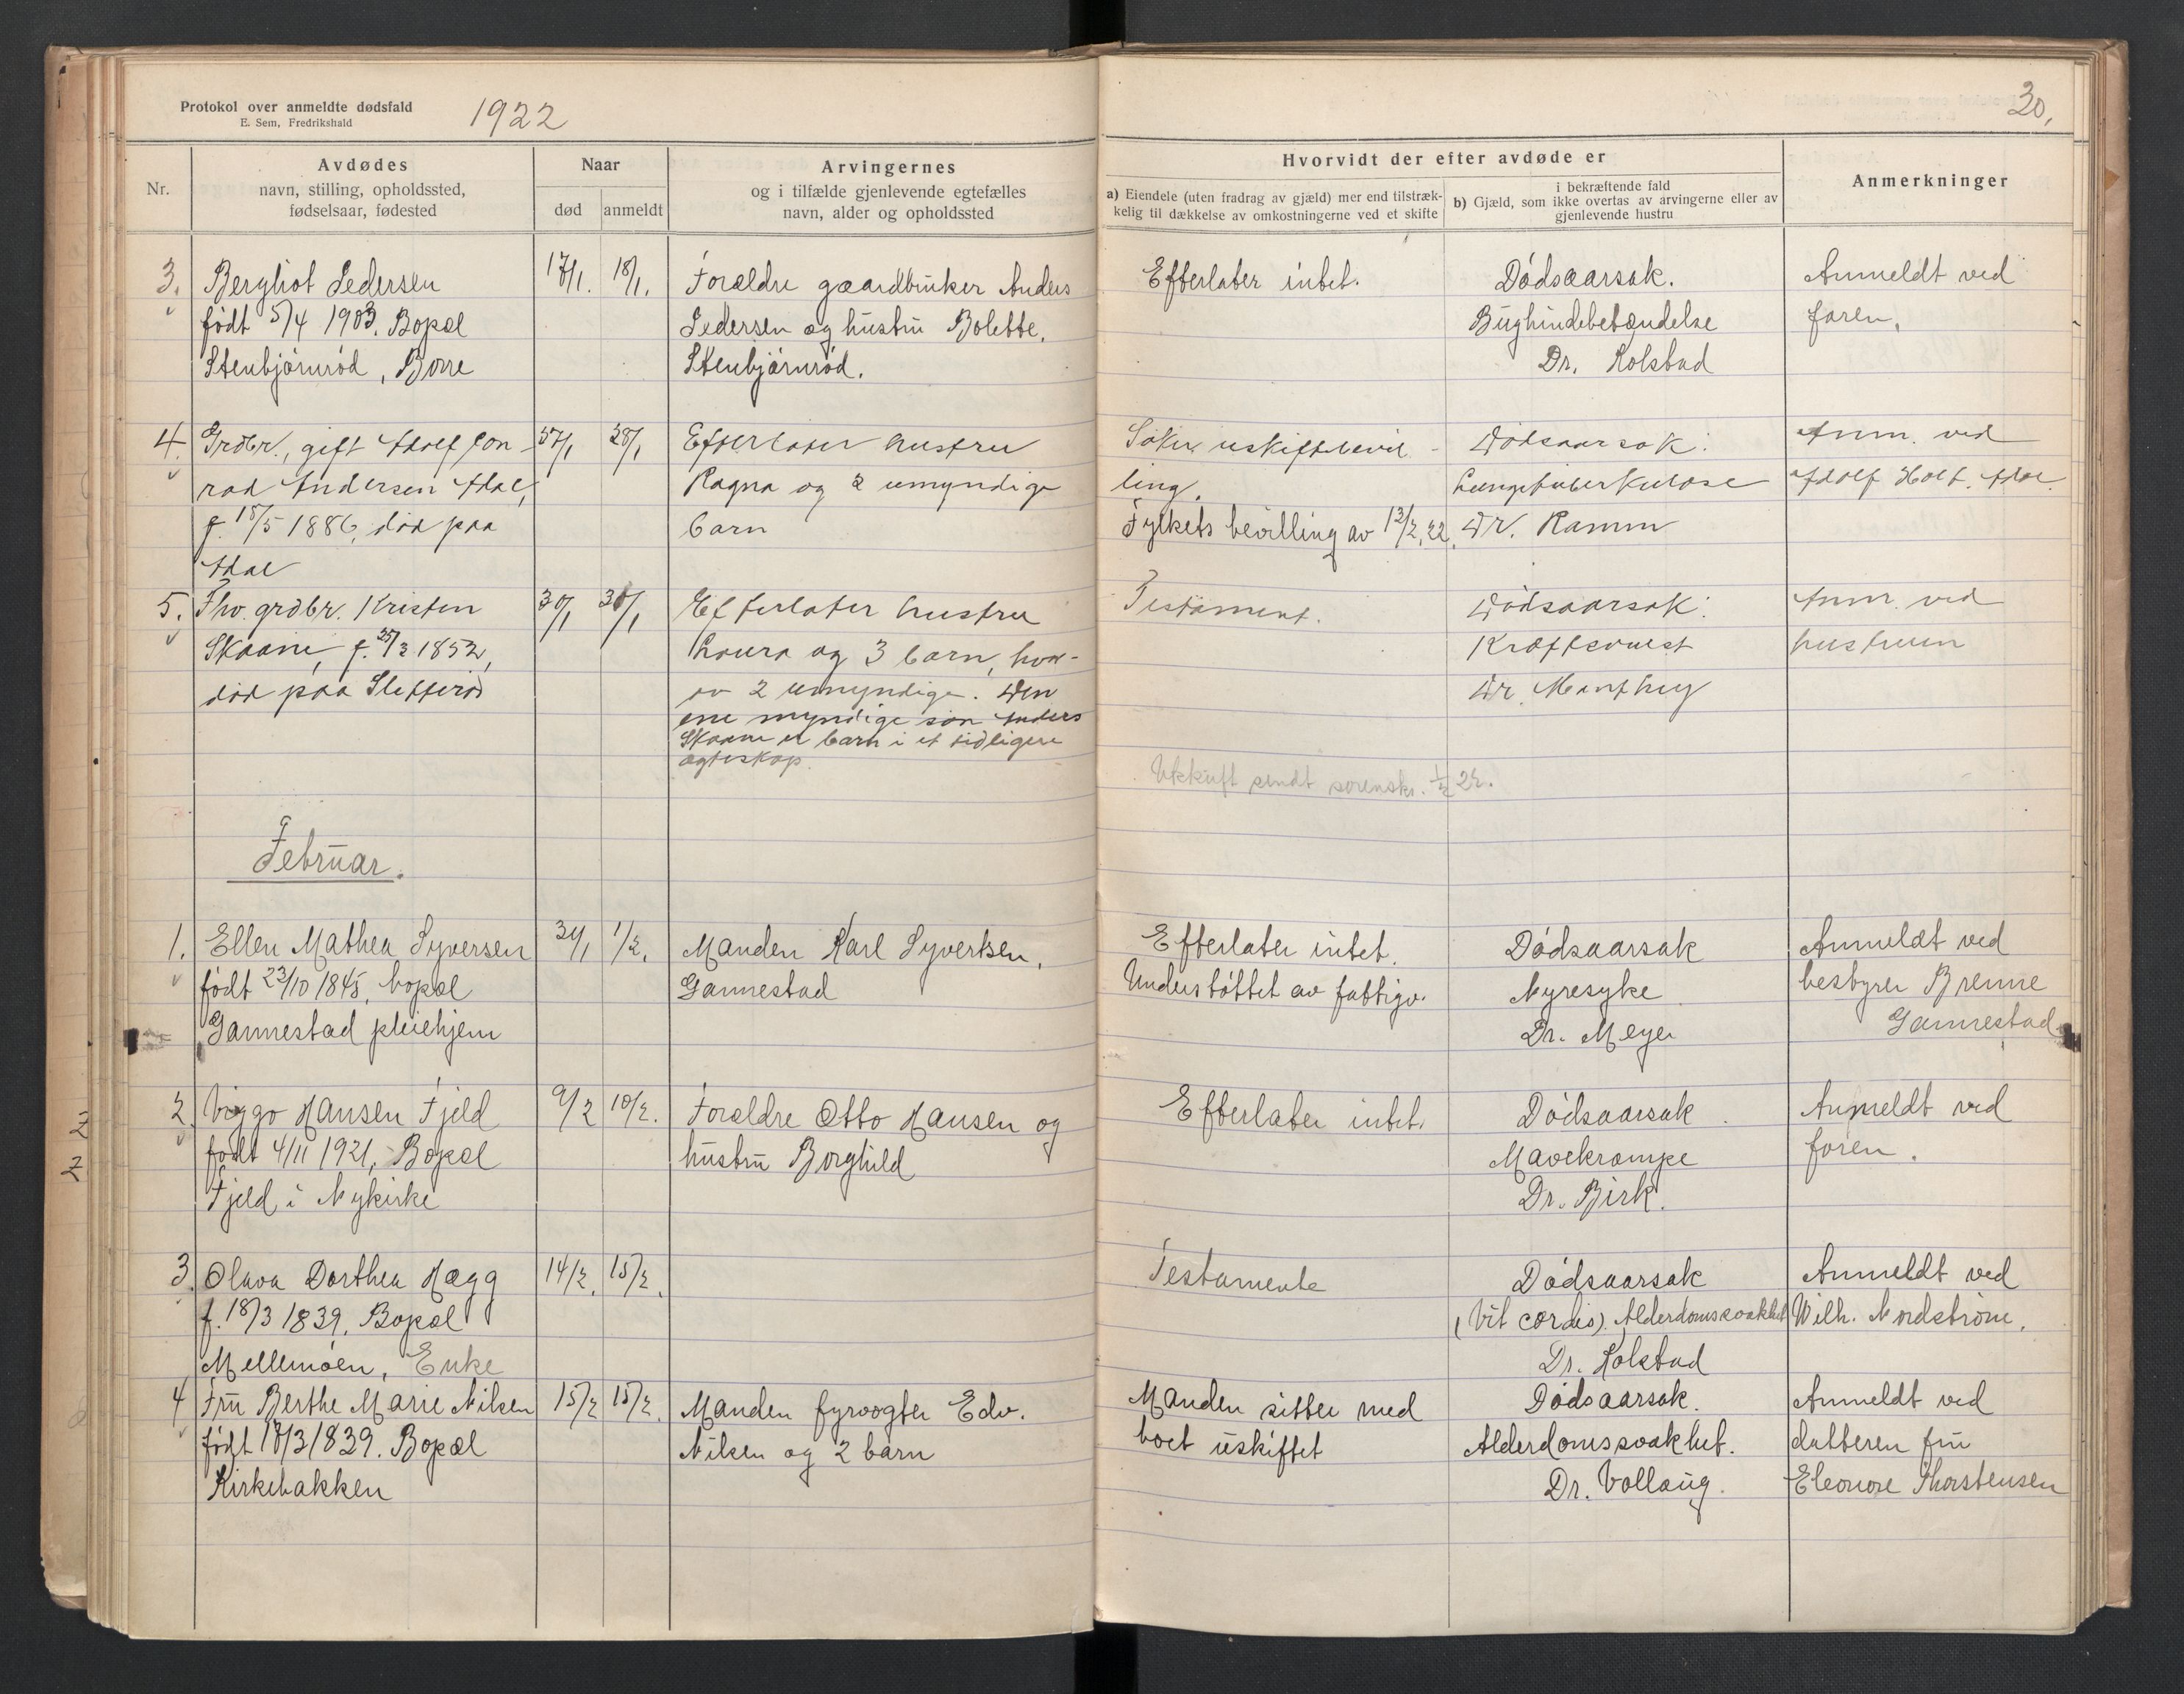 Protokol over anmeldte dødsfald
E. Sem, Fredrikshald
1922
30,
Nr.
Avdødes
navn, stilling, opholdssted,
fødselsaar, fødested
Naar
død
anmeldt
Arvingernes
og i tilfælde gjenlevende egtefælles
navn, alder og opholdssted
Hvorvidt der efter avdøde er
a) Eiendele (uten fradrag av gjæld) mer end tilstræk-
kelig til dækkelse av omkostningerne ved et skifte
i bekræftende fald
b) Gjæld, som ikke overtas av arvingerne eller av
gjenlevende hustru
Anmerkninger
3. Bergliot Pedersen 17/1. 18/1. Forældre gaardbruker Anders Efterlater intet. Dødsaarsak. Anmeldt ved
født 5/4 1903. Bopæl Pedersen og hustru Bolette, Bughindebetændelse faren.
Stenbjørnrød, Borre Stenbjørnrød. Dr. Kolstad
4. Grdbr., gift Adolf Con- 27/1 28/1 Efterlater hustru Søker uskiftebevil- Dødsaarsak: Anm. ved
rad Andersen Adal, Ragna og 2 umyndige ling. Lungetuberkulose Adolf Holt, Adal.
f. 18/5 1886, død paa barn Fylkets bevilling av 13/2.22. Dr. Ramm
Adal
5. Fhv. grdbr. Kristen 30/1 30/1 Efterlater hustru Testament. Dødsaarsak: Anm. ved
Skaane, f. 25/3 1852, Laura og 3 barn, hvor- Kræftsvulst hustruen
død paa Sletterød av 2 umyndige. Den Dr. Manthey
ene myndige søn Anders
Skaane er barn i et tidligere
ægteskap.
Utskrift sendt sorenskr. 1/2 22.
Februar.
1. Ellen Mathea Syversen 31/1 1/2. Manden Karl Syvertsen, Efterlater intet. Dødsaarsak Anmeldt ved
født 23/10 1845, bopæl Gannestad Understøttet av fattigv. Nyresyke bestyrer Brenne
Gannestad pleiehjem Dr. Meyer Gannestad
2. Viggo Hansen Fjeld 9/2 10/2. Forældre Otto Hansen og Efterlater intet. Dødsaarsak Anmeldt ved
født 4/11 1921, Bopæl hustru Borghild Mavekrampe faren.
Fjeld i Nykirke Dr. Birk.
3. Olava Dorthea Hægg 14/2. 15/2. Testamente Dødsaarsak Anmeldt ved
f. 18/3 1839, Bopæl (Vit cordis). Alderdomssvakhet Wilh. Nordstrøm.
Mellemøen, Enke Dr. Kolstad
4 Fru Berthe Marie Nilsen 15/2 15/2. Manden fyrvogter Edv. Manden sitter med Dødsaarsak. Anmeldt ved
født 18/3 1839. Bopæl Nilsen og 2 barn boet uskiftet Alderdomssvakhet. datteren fru
Kirkebakken Dr. Vollaug. Eleonore Thorstensen